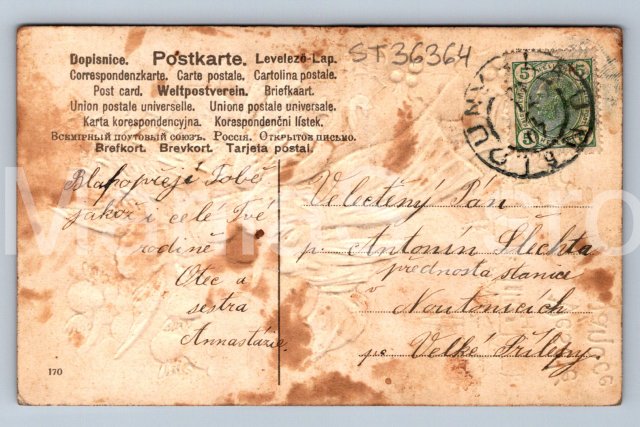 ST36364
Dopisnice. Postkarte. Levelező-Lap.
Correspondenzkarte. Carte postale. Cartolina postale.
Post card. Weltpostverein. Briefkaart.
Union postale universelle. Unione postale universale.
Karta korespondencyjna. Korespondenční lístek.
Всемірный почтовый союзъ. Россія. Открытое письмо.
Brefkort. Brevkort. Tarjeta postal.
5
5
Blahopřejí Tobě
jakož i celé Tvé
rodině
Otec a
sestra
Annastázie.
Velectěný Pán
p. Antonín Šlechta
přednosta stanice
v Noutonicích
p. Velké Přílepy.
170